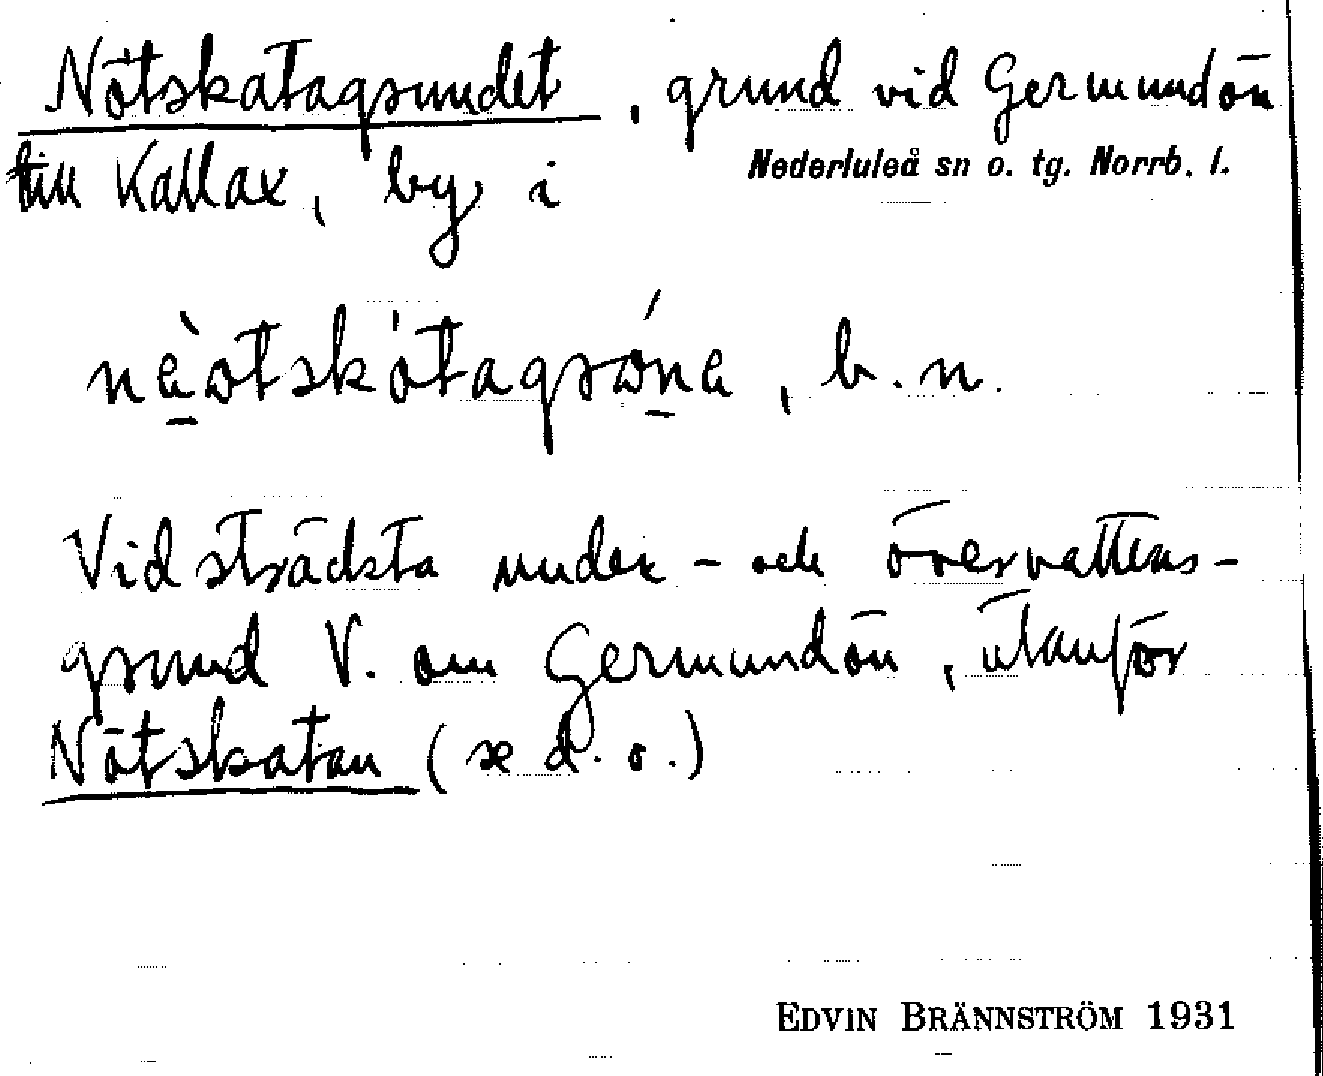 Nötskatagrundet, grund vid Germundön
till Kallax, by i Nederluleå sn o. tg. Norrb. l.
b. n.
Vidsträckta under- och övervattens-
grund V. om Germundön, utanför
Nötskatan (se d. o.)
EDVIN BRÄNNSTRÖM 1931